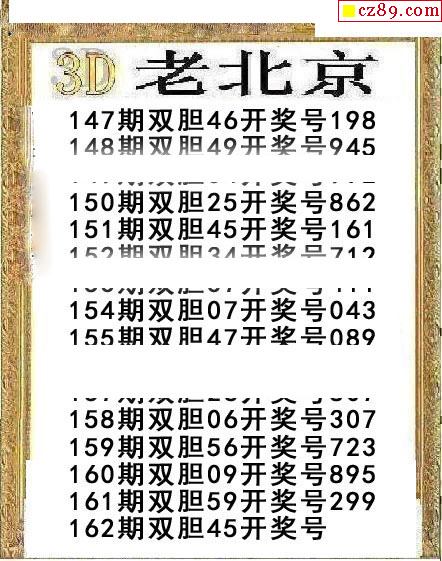 cz89.com
3D 老北京
147期双胆46开奖号198
148期双胆49开奖号945
150期双胆25开奖号862
151期双胆45开奖号161
152期双胆34开奖号712
154期双胆07开奖号043
155期双胆47开奖号089
158期双胆06开奖号307
159期双胆56开奖号723
160期双胆09开奖号895
161期双胆59开奖号299
162期双胆45开奖号